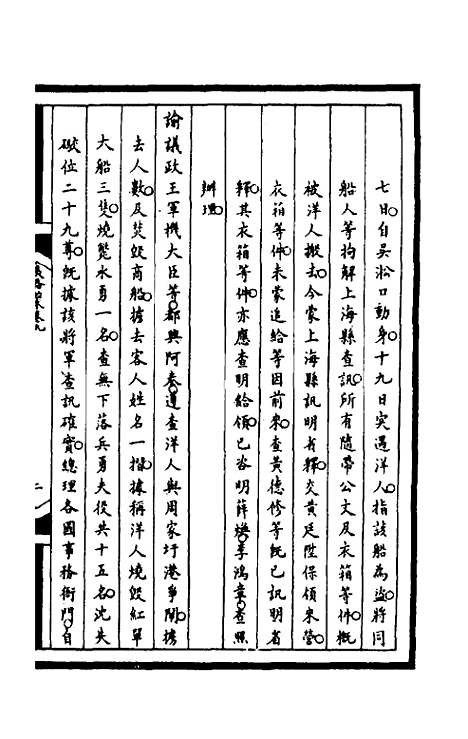 七日自吳淞口動身。十九日突遇洋人。指該船為盜。將同
船人等拘解上海縣查訊。所有隨帶公文及衣箱等件。概
被洋人搬去。今蒙上海縣訊明省釋。交黃廷陞保領來營。
衣箱等件。未蒙追給等因前來。查黃德修等既已訊明省
釋。其衣箱等件。亦應查明給領。已咨明薛煥。李鴻章。查照
辦理。
諭議政王軍機大臣等。都興阿奏。遵查洋人與周家圩港爭鬧。擄
去人數。及焚毀商船。擄去客人姓名一摺。據稱洋人燒毀紅單
大船三隻。燒斃水勇一名。查無下落兵勇夫役共十五名。沈失
礮位二十九尊。既據該將軍查訊確實。總理各國事務衙門。自